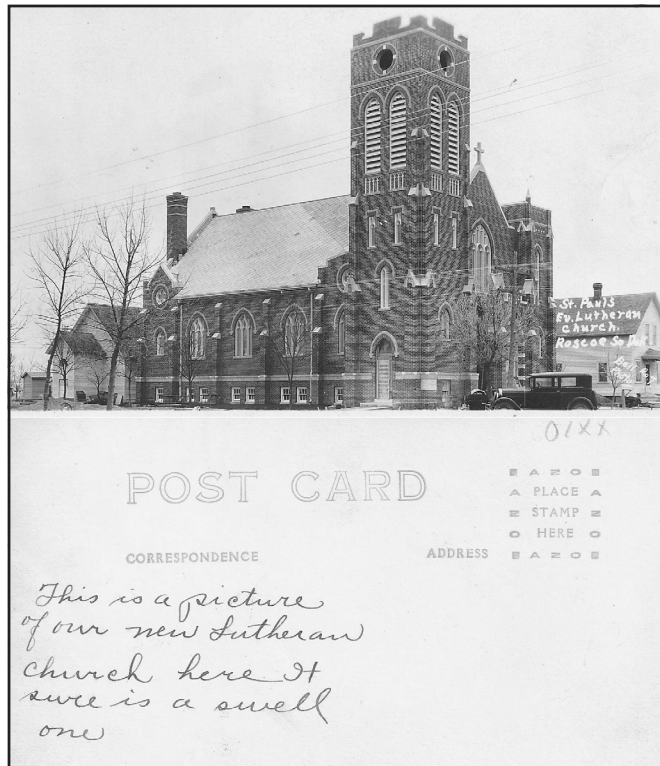 St. Pauls
Ev. Lutheran
Church.
Roscoe So Dak
01XX
POST CARD
E A Z O E
A PLACE A
Z STAMP Z
O HERE O
E A Z O E
CORRESPONDENCE
ADDRESS
This is a picture
of our new Lutheran
church here It
sure is a swell
one